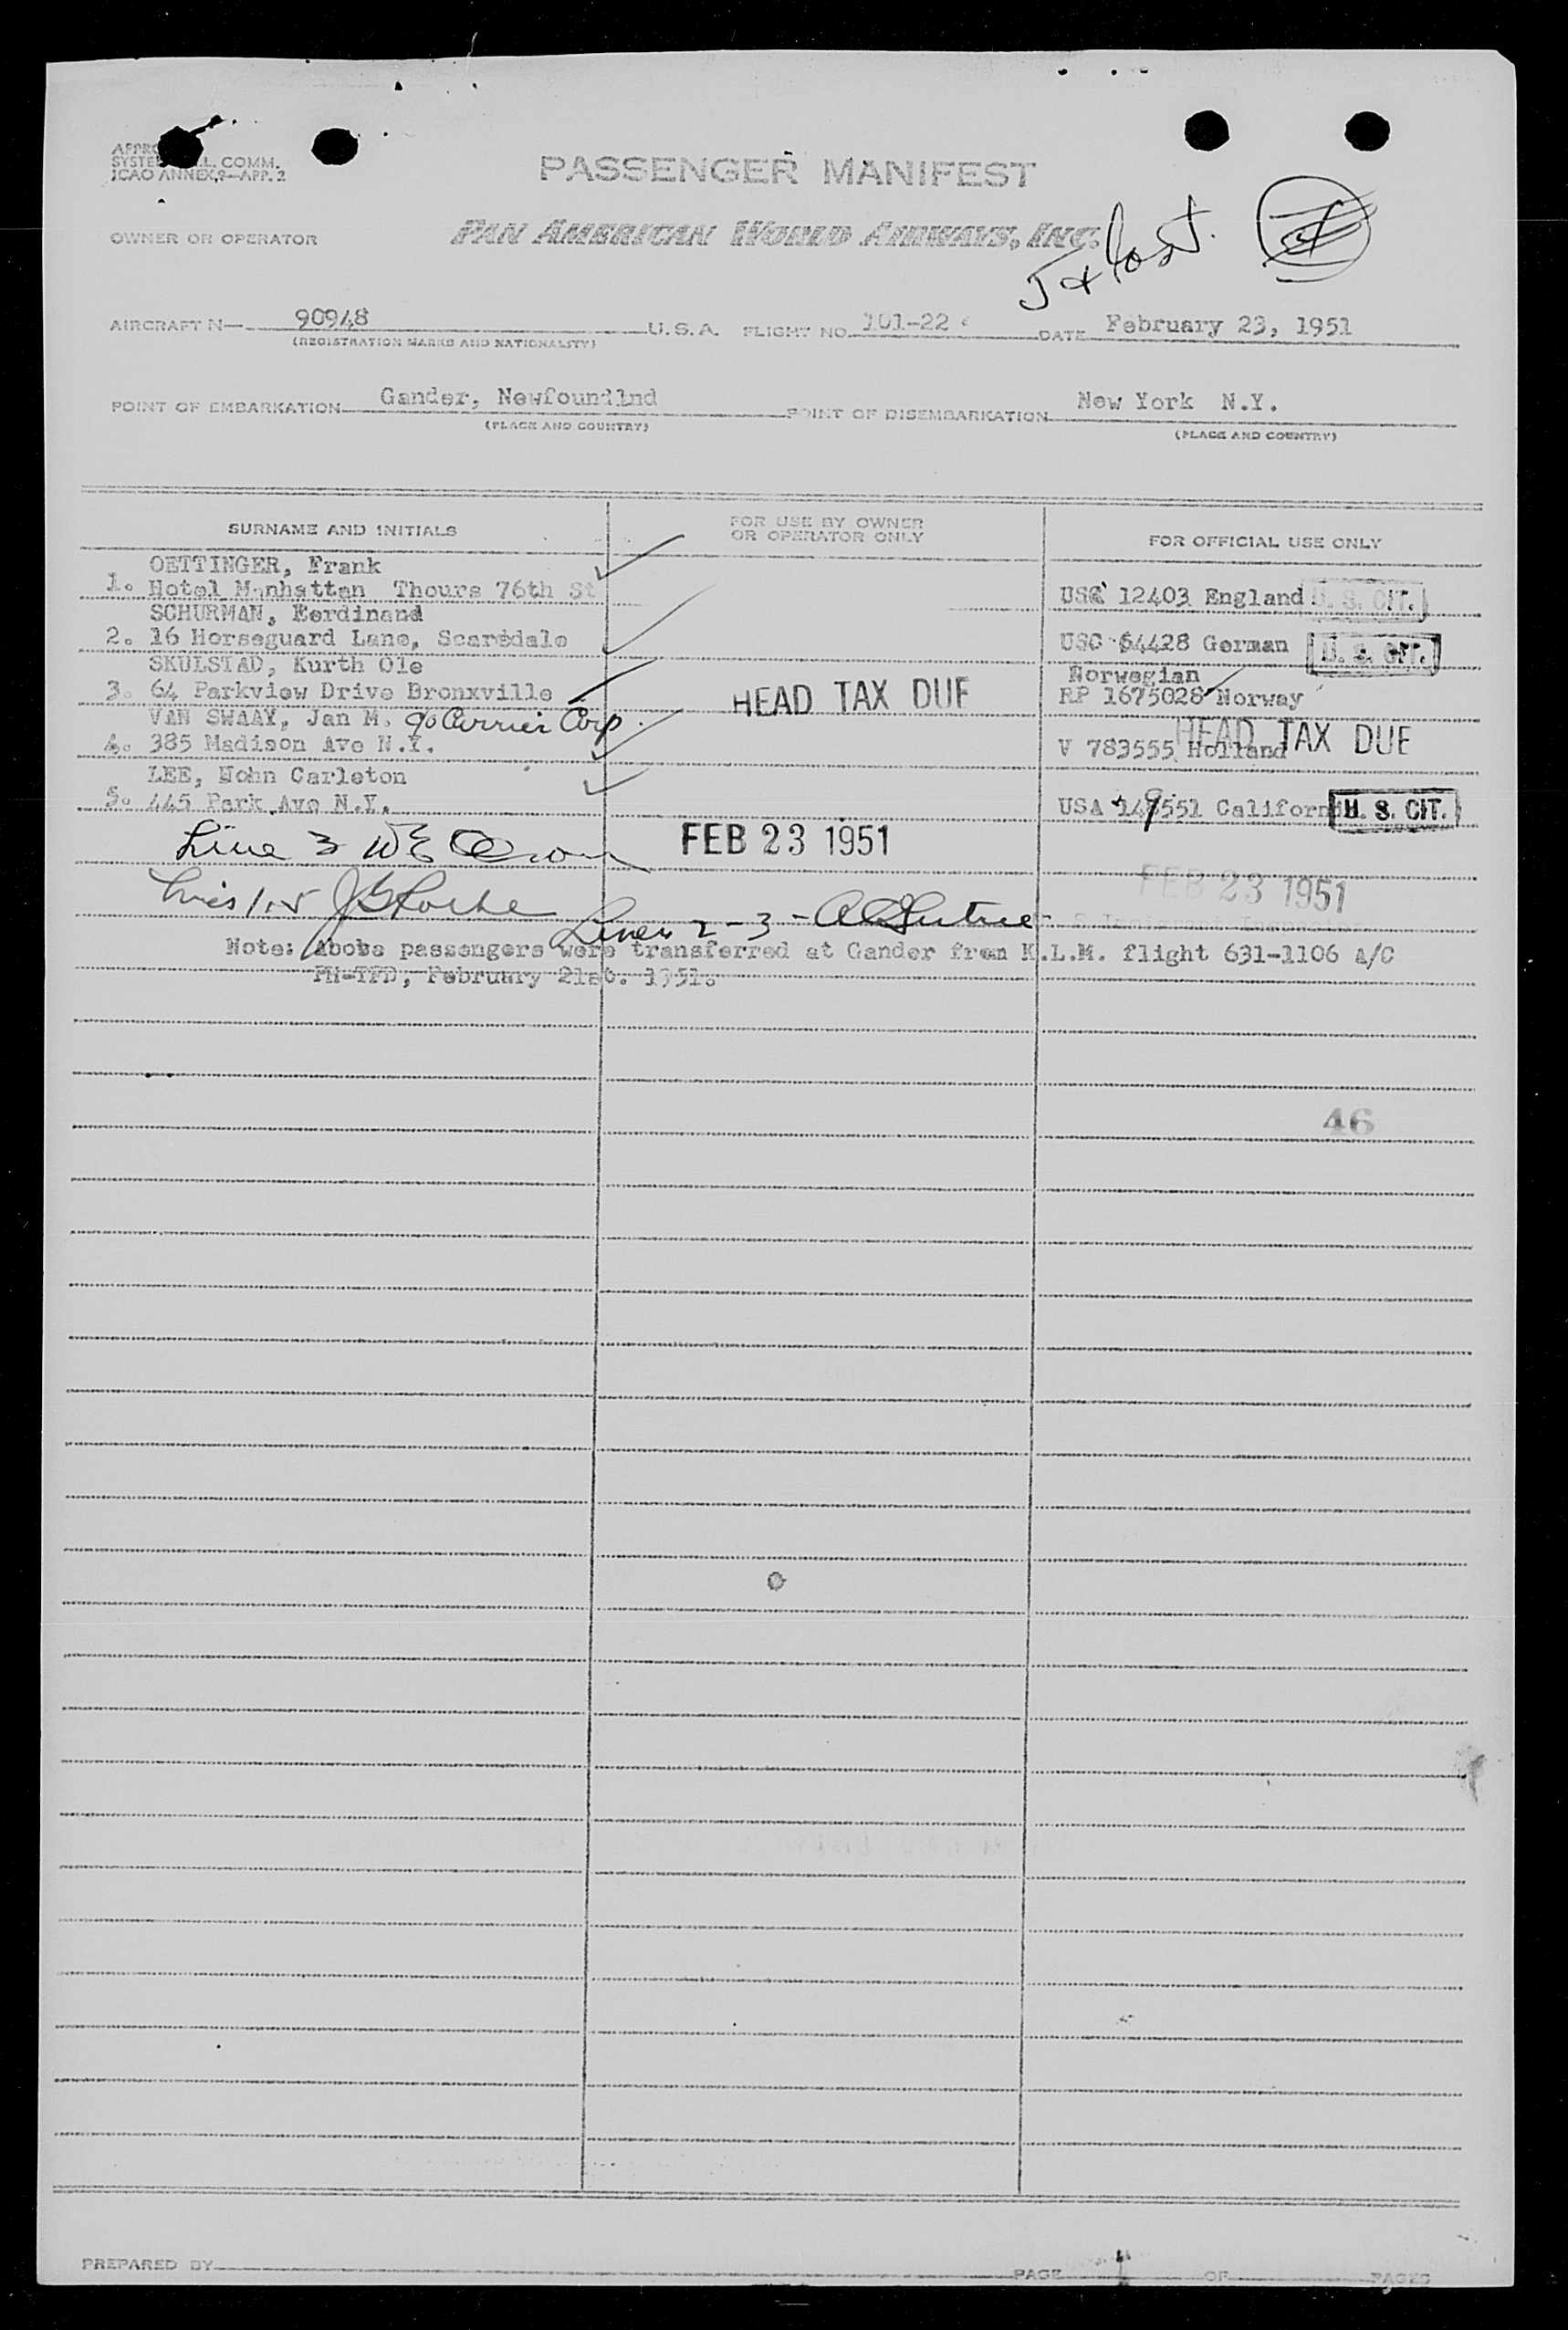 SYSTE L. COMM.
ICAO ANNEX 9—APP. 2
PASSENGER MANIFEST
OWNER OR OPERATOR
PAN AMERICAN WORLD AIRWAYS, INC.
AIRCRAFT N— 90948 U.S.A. FLIGHT NO. 101-22 DATE February 23, 1951
(REGISTRATION MARKS AND NATIONALITY)
POINT OF EMBARKATION Gander, Newfoundlnd POINT OF DISEMBARKATION New York N.Y.
(PLACE AND COUNTRY) (PLACE AND COUNTRY)
SURNAME AND INITIALS
FOR USE BY OWNER
OR OPERATOR ONLY
FOR OFFICIAL USE ONLY
OETTINGER, Frank
1. Hotel Manhattan Thours 76th St USC 12403 England U. S. CIT.
SCHURMAN, Eerdinand
2. 16 Horseguard Lane, Scarsdale USC 54428 German U. S. CIT.
SKULSTAD, Kurth Ole Norwegian
3. 64 Parkview Drive Bronxville HEAD TAX DUE RP 1675028 Norway
VAN SWAAY, Jan M. c/o Carrier Corp. HEAD TAX DUE
4. 385 Madison Ave N.Y. V 783555 Holland
LEE, John Carleton
5. 445 Park Ave N.Y. USA 149551 Californi U. S. CIT.
Line 3 FEB 23 1951
FEB 23 1951
Lines 2-3 -
Note: Above passengers were transferred at Gander from K.L.M. flight 631-1106 A/C
PH-TFD, February 21st. 1951.
46
PREPARED BY PAGE OF PAGES